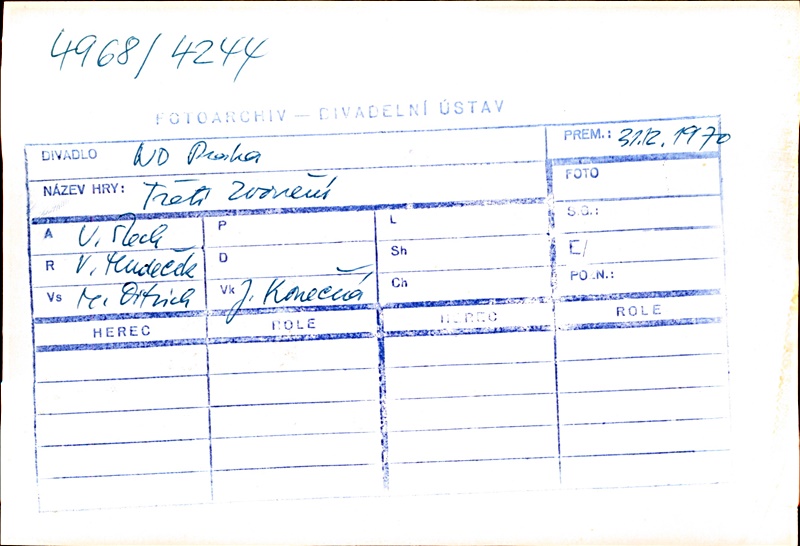 4968/4244
FOTOARCHIV — DIVADELNÍ ÚSTAV
DIVADLO ND Praha
PREM.: 31.12.1970
NÁZEV HRY: Třetí zvonění
FOTO
A V. Štech P L S.G.:
R V. Hudeček D Sh Č/
Vs M. Ditrich Vk J. Konečná Ch PO .N.:
HEREC ROLE HEREC ROLE